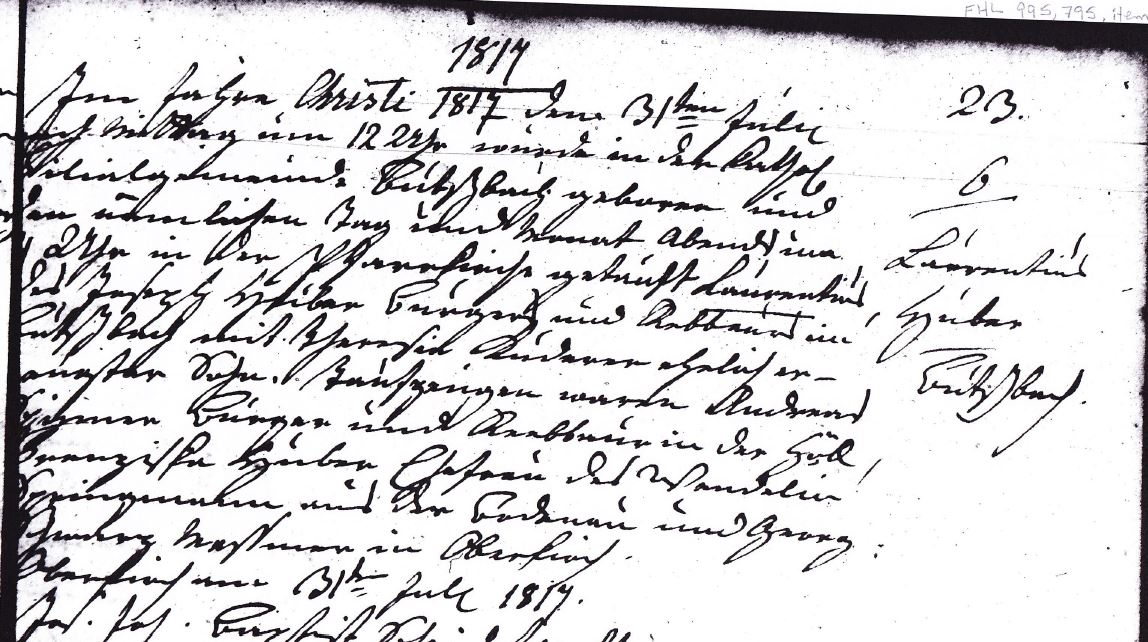 FHL 995,795,
1817
Im Jahre Christi 1817 den 31ten July
nach Mittag um 12 Uhr wurde in der Kathol
Filialgemeinde Butschbach geboren und
den nemlichen Tag und Monat Abends um
Uhr in der Pfarrkirche getauft Laurentius
des Joseph Huber Bürgers und Rebbauers im
Butschbach mit Theresia ehelich er-
zeugter Sohn. Taufzeugen waren Andreas
Bürger und Rebbauer in der Höll,
Franziska Huber Ehefrau des Wendelin
Springmann aus der Bodenau und Georg
Meßmer in Oberkirch.
Oberkirch am 31ten July 1817.
Baptist
23.
6
Laurentius
Huber
Butschbach.